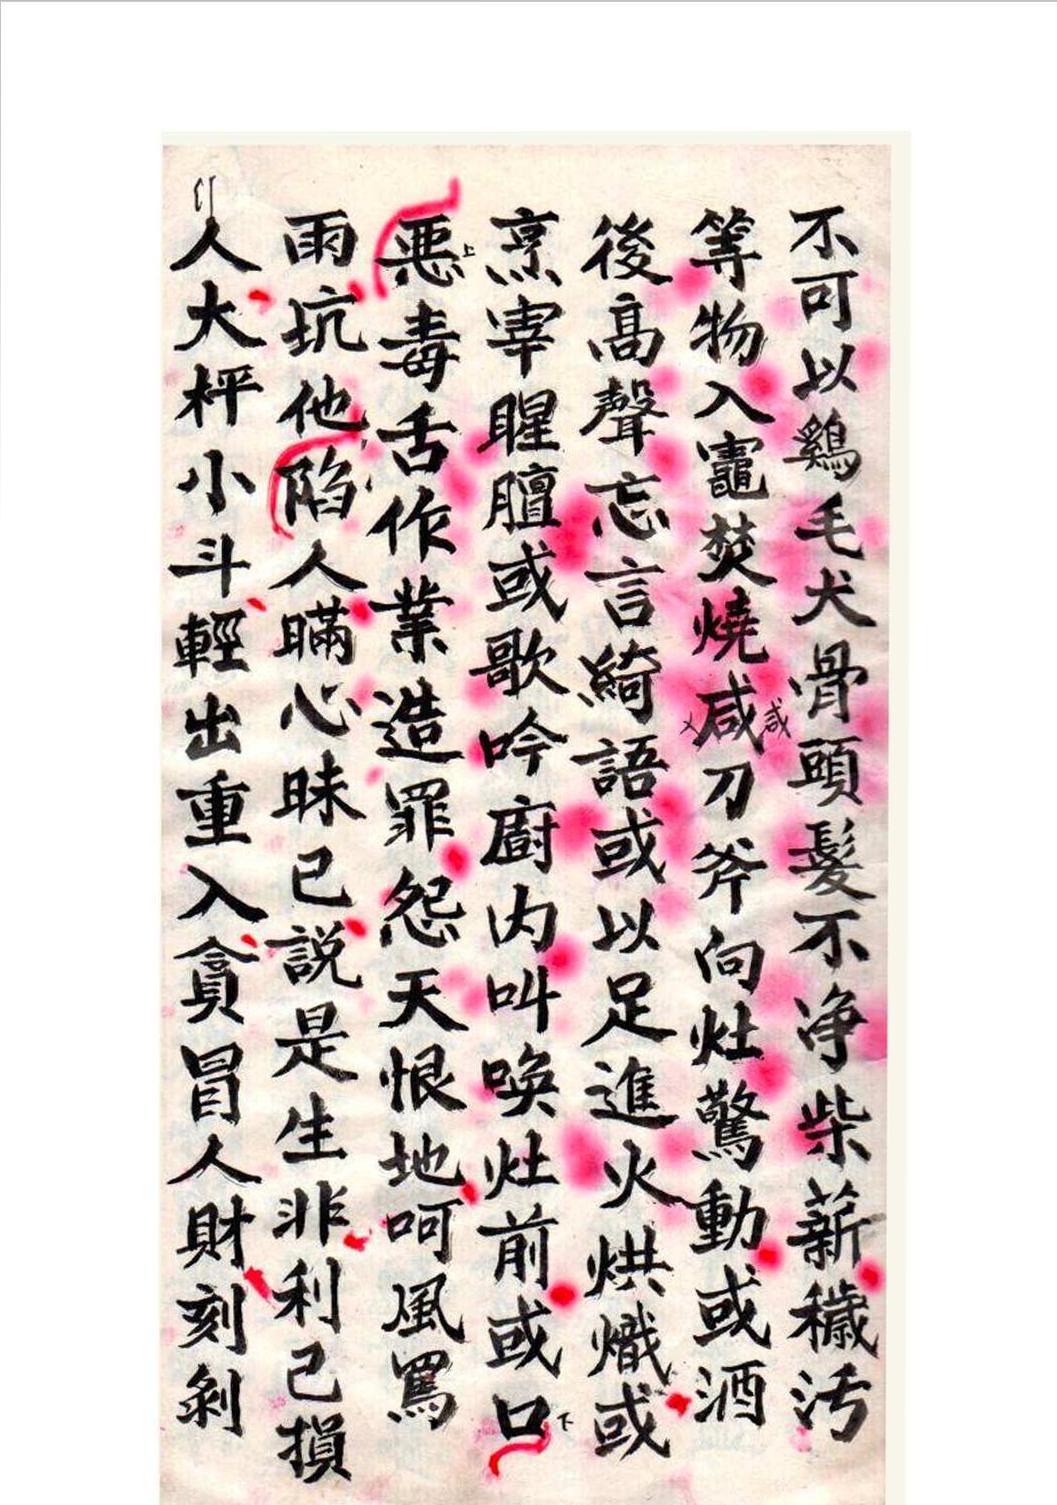 不可以鷄毛犬骨頭髮不净柴薪穢汚
等物入竈焚燒咸刀斧向灶驚動或酒
咸
後高聲忘言綺語或以足進火烘熾或
烹宰腥膻或歌吟廚内叫喚灶前或口
下
惡毒舌作業造罪怨天恨地呵風罵
上
雨坑他陷人瞞心昧己説是生非利己損
人大枰小斗輕出重入貪冒人財刻剝